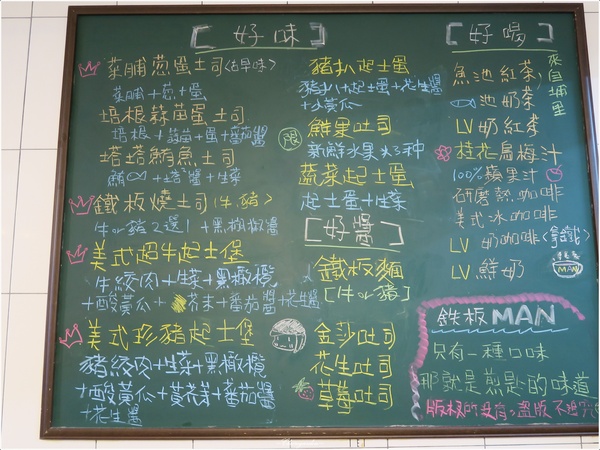 [好味]
菜脯蔥蛋土司(古早味)
菜脯+蔥+蛋
培根蒜苗蛋土司
培根+蒜苗+蛋+番茄醬
塔塔鮪魚土司
鮪+塔醬+生菜
鐵板燒土司(牛.豬)
牛or豬2選1+黑橄欖醬
美式起牛起士堡
牛絞肉+生菜+黑橄欖
+酸黃瓜+黃芥末+番茄醬+花生醬
美式珍豬起士堡
豬絞肉+生菜+黑橄欖
+酸黃瓜+黃芥茉+番茄醬
+花生醬
豬扒起士蛋
豬扒+起士蛋+花生醬
+小黃瓜
限
鮮果吐司
新鮮水果×3種
蔬菜起士蛋
起士蛋+生菜
[好醬]
鐵板麵
[牛or豬]
金莎吐司
花生吐司
草莓吐司
[好喝]
來自埔里
魚池紅茶
池奶茶
LV奶紅茶
桂花烏梅汁
100%蘋果汁
研磨熱咖啡
美式冰咖啡
LV 奶咖啡(拿鐵)
LV 鮮奶
MAN
鉄板MAN
只有一種口味
那就是煎是的味道
版权所没有,盜版不追究